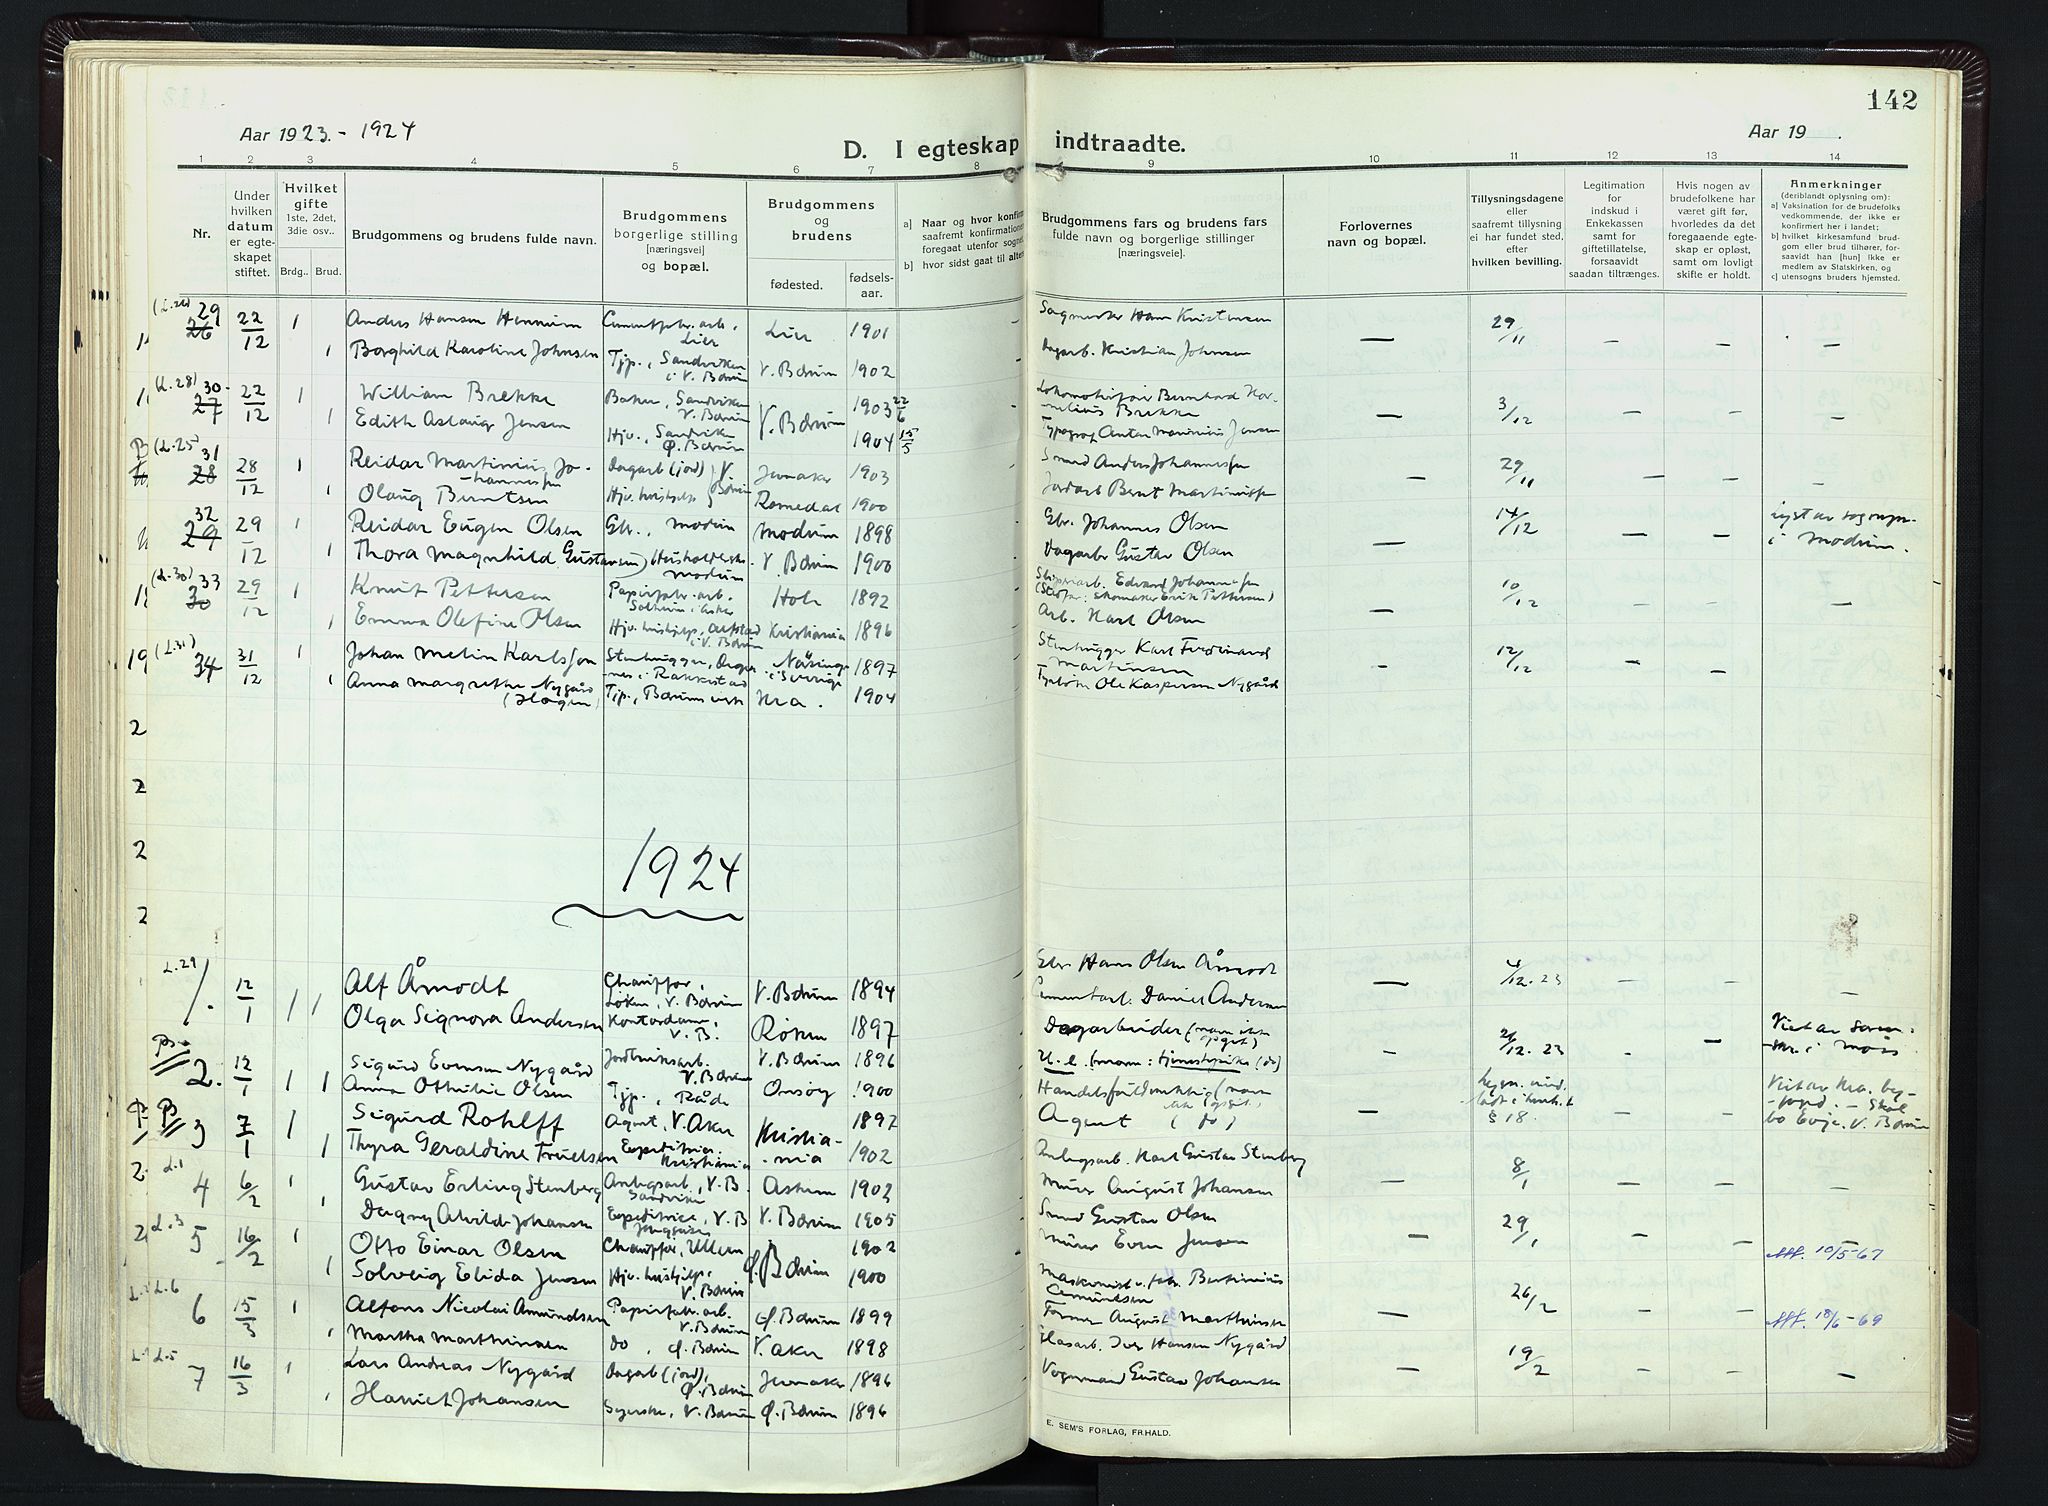 142
Aar 1923.- 1924
D. I egteskap indtraadte.
Aar 19 .
1 2 3 4 5 6 7 8 9 10 11 12 13 14
Nr.
Under hvilken datum er egteskapet stiftet.
Hvilket gifte 1ste, 2det, 3die osv..
Brdg.. Brud.
Brudgommens og brudens fulde navn.
Brudgommens borgerlige stilling [næringsvei] og bopæl.
Brudgommens og brudens
fødested. fødsels-aar.
a) Naar og hvor konfirm
saafremt konfirmatione
foregaat utenfor sogne
b) hvor sidst gaat til alter
Brudgommens fars og brudens fars
fulde navn og borgerlige stillinger
[næringsveie].
Forlovernes
navn og bopæl.
Tillysningsdagene
eller
saafremt tillysning
ei har fundet sted,
efter
hvilken bevilling.
Legitimation
for
indskud i
Enkekassen
samt for
giftetillatelse,
forsaavidt
saadan tiltrænges.
Hvis nogen av
brudefolkene har
været gift før,
hvorledes da det
foregaaende egte-
skap er opløst,
samt om lovligt
skifte er holdt.
Anmerkninger
(deriblandt oplysning om):
a) Vaksination for de brudefolks
vedkommende, der ikke er
konfirmert her i landet;
b) hvilket kirkesamfund brud-
gom eller brud tilhører, for-
saavidt han [hun] ikke er
medlem av Statskirken, og
c) utensogns bruders hjemsted.
29 26 22/12 1 Anders Hansen Cementfabr. arb., Lier Lier 1901 Hans Kristensen 29/11 —
1 Borghild Karoline Johnsen Tjp., Sandviken i V. Bærum V. Bærum 1902 Dagarb. Kristian Johnsen
(L.28) 30 27 22/12 1 William Brekke Baker, Sandviken V. Bærum V. Bærum 1903 22/6 Lokomotivfør Bernhard Kornelius Brekke 3/12 —
1 Edith Aslaug Jensen Hjv., Sandviken Ø. Bærum 1904 15/5 Typograf Anton Marinius Jensen
(L.25) 31 28 28/12 1 Reidar Martinius Johannessen Dagarb (jord) V. Bærum Jevnaker 1903 Smed Anders Johannessen 29/11 —
1 Olaug Berntsen Hjv. hushjelp Romedal 1900 Jordarb Bernt Martinussen
32 29 29/12 1 Reidar Eugen Olsen Gbr., Modum Modum 1898 Gbr. Johannes Olsen 14/12 — i Modum.
1 Thora Magnhild Gustavsen Modum V. Bærum 1900 Dagarbr Gustav Olsen
(L.30) 33 30 29/12 1 Knut Pettersen Papirfabr. arb. Hole 1892 Edvard Johannessen (Stedfar: skomaker Erik Pettersen) 10/12 —
1 Emma Olefine Olsen Hjv. hushjelp, i V. Bærum Kristiania 1896 Arb. Karl Olsen
(L.31) 34 31/12 1 Johan Melin Karlsson Stenhugger, i Sverige 1897 Stenhugger Karl Ferdinand Martinsen 12/12 —
1 Anna Margrethe Nygård (Hagen) Tjp., Bærums verk Kra. 1904 Ole Kaspersen Nygård
1924
L.29 1. 12/1 1 1 Alf Åmodt Chauffør, Løken, V. Bærum V. Bærum 1894 Gbr Hans Olsen Åmodt 4/12. 23 —
Olga Signora Andersen Kontordame, V. B. Røken 1897 Cementarb. Daniel Andersen
2. 12/1 1 1 Sigurd Evensen Nygård Jordbruksarb. V. Bærum V. Bærum 1896 Dagarbeider (navn ikke opgit) 12. 23 —
Anna Othilie Olsen Tjp., Råde Onsøy 1900
3 7/1 1 Sigurd Rohlff Agent, V. Aker Kristiania 1897 Handelsfuldmektig (navn ikke opgit) § 18. V. Bærum
1 Thyra Geraldine Truelsen Kristiania 1902 Agent (do)
L.1 4 6/2 1 Gustav Erling Stenberg Anlegsarb, V. B. Sandviken Askim 1902 Anlegsarb. Karl Gustav Stenberg 8/1 —
1 Dagny Alvilde Johansen Expeditrice, V. B V. Bærum 1905 Murer August Johansen
L.3 5 16/2 1 Otto Einar Olsen Chauffør, Ullern Ø. Bærum 1902 Smed Gustav Olsen 29/1 —
1 Solveig Elida Jensen Hjv. hushjelp, V. Bærum 1900 Murer Even Jensen 10/5-67
L.6 6 15/3 1 Alfons Nicolai Amundsen Papirfabr. arb. V. Bærum Ø. Bærum 1899 Maskinist v. fabr. Bertinius Amundsen 26/2 —
1 Martha Marthinsen do, Ø. Bærum V. Aker 1898 Former August Marthinsen 18/6-69
L.5 7 16/3 1 Lars Andreas Nygård Dagarb (jord), Ø. Bærum Jevnaker 1896 Glasarb. Iver Hansen Nygård 19/2 —
1 Harriet Johansen Syerske, V. Bærum Ø. Bærum 1896 Vognmand Gustav Johansen
E. SEM'S FORLAG, FR.HALD.